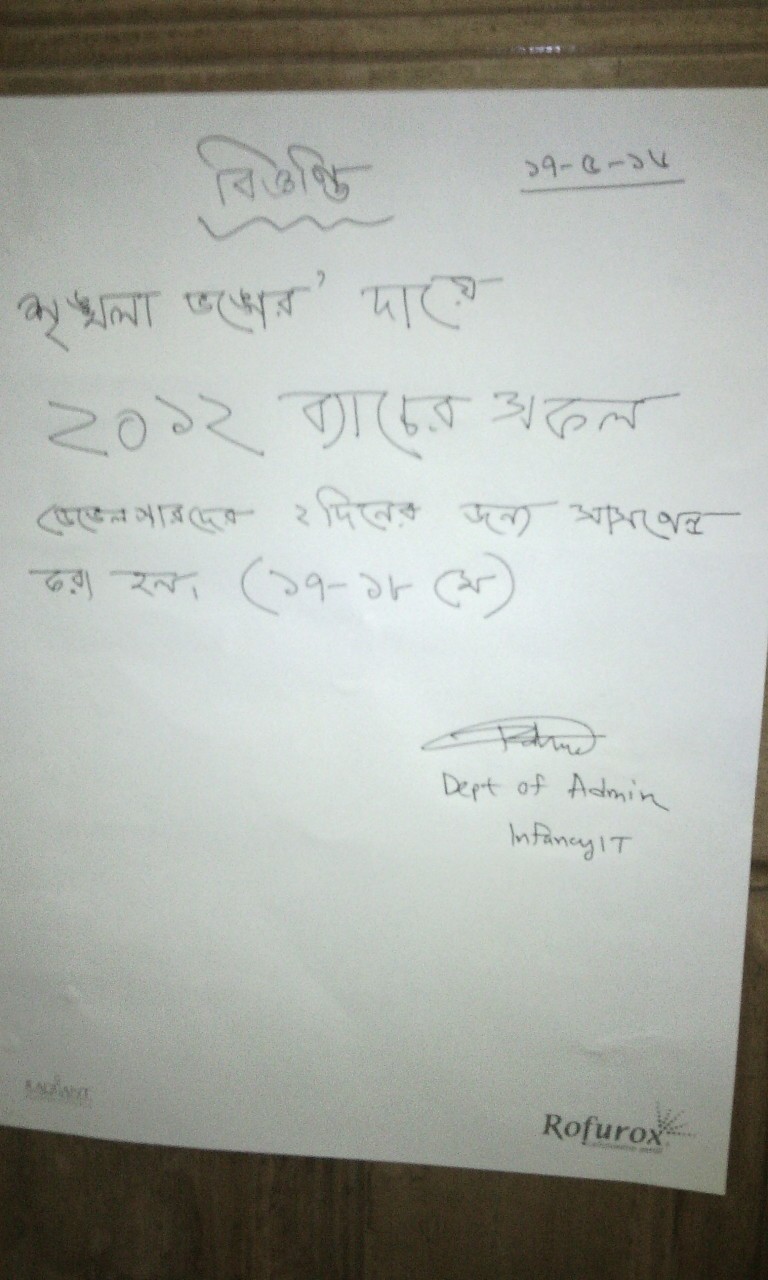 বিজ্ঞপ্তি
১৭-৫-১৫
শৃঙ্খলা ভঙ্গের' দায়ে
২০১২ ব্যাচের সকল
ডেভেলপারদের ২ দিনের জন্য সাসপেন্ড
করা হল। (১৭-১৮ মে)
Dept of Admin
Infancy IT
RADIANT
Rofurox